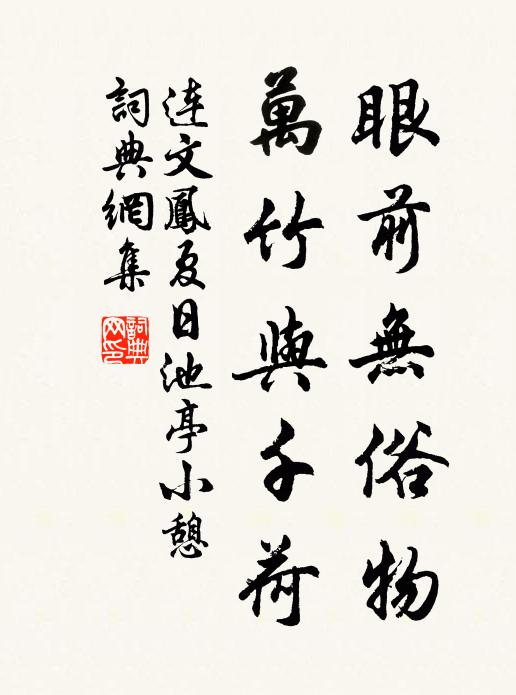 眼前無俗物
萬竹與千荷
連文鳳夏日池亭小憩
詞典網集
詞典网印